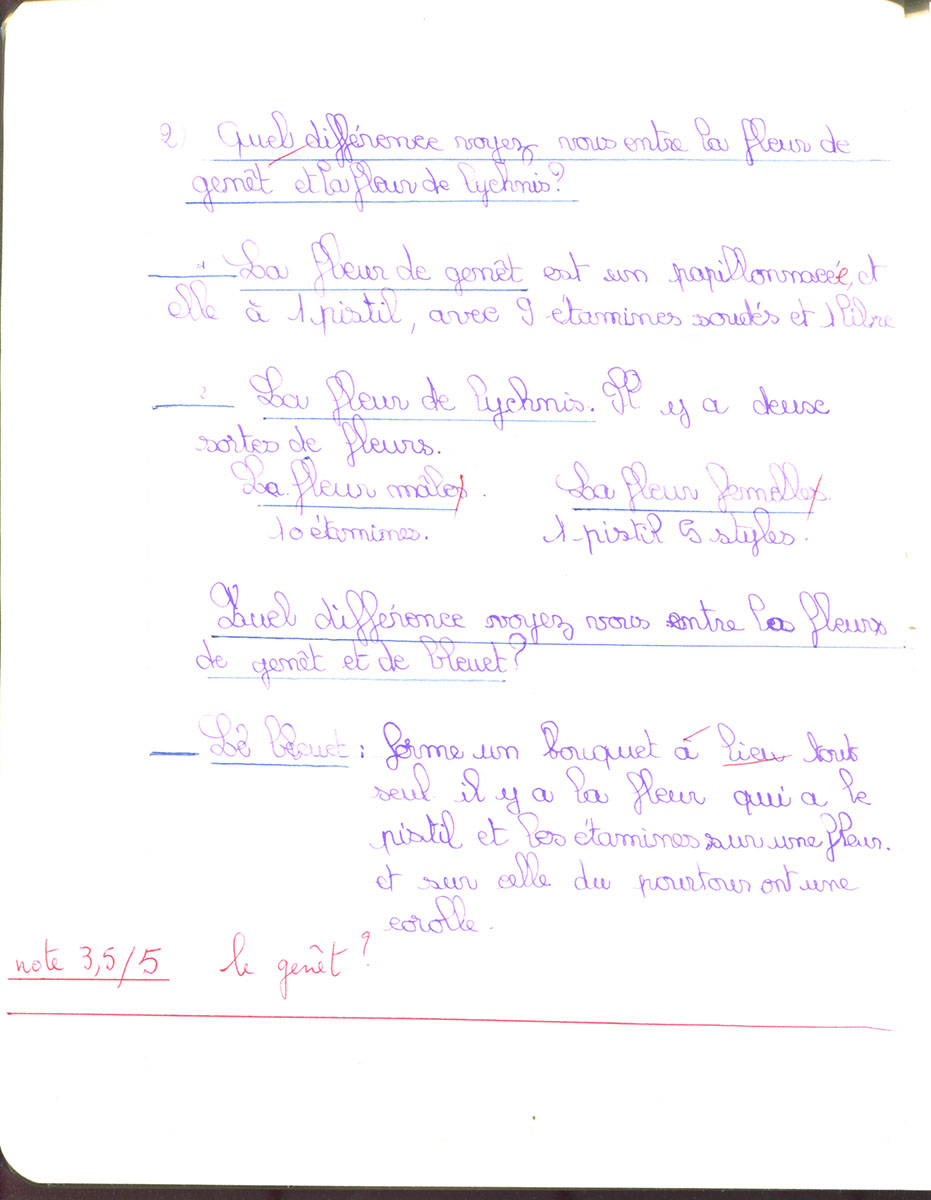 2) Quel différence voyez vous entre la fleur de
genêt et la fleur de lychnis?
1 La fleur de genêt est un papillonnacée, et
elle à 1 pistil, avec 9 étamines soudés et 1 libre
2 La fleur de lychnis. Il y a deuse
sortes de fleurs.
La fleur mâles. La fleur femelles.
10 étamines. 1 pistil 5 styles.
Quel différence voyez vous entre la fleurs
de genêt et de bleuet?
Le bleuet: forme un bouquet à lieu tout
seul il y a la fleur qui a le
pistil et les étamines sur une fleur.
et sur celle du pourtour ont une
corolle.
note 3,5/5 le genêt?